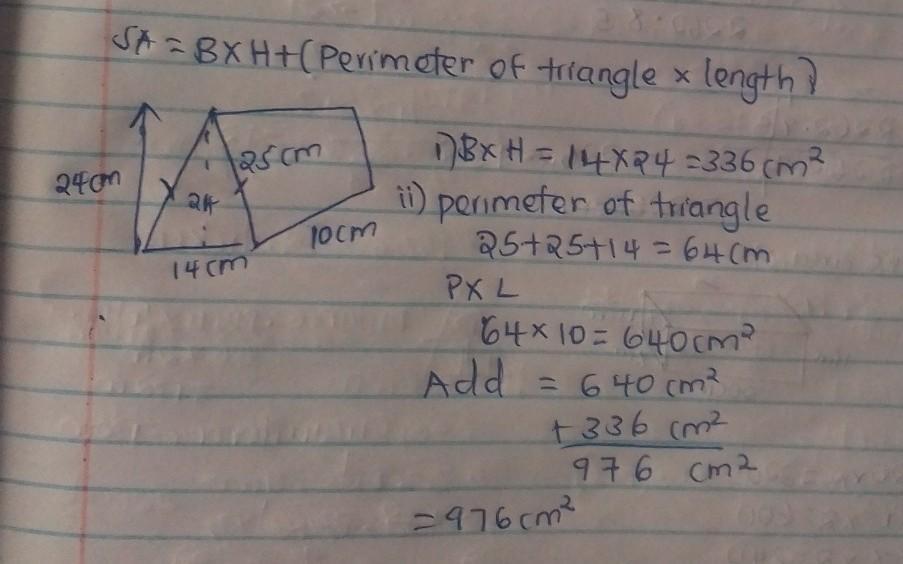 SA = B X H + (Perimeter of triangle x length)
24cm
25cm
24
10cm
14cm
i) B X H = 14 X 24 = 336 cm²
ii) perimeter of triangle
25 + 25 + 14 = 64 cm
P X L
64 x 10 = 640 cm²
Add = 640 cm²
+ 336 cm²
976 cm²
= 976 cm²